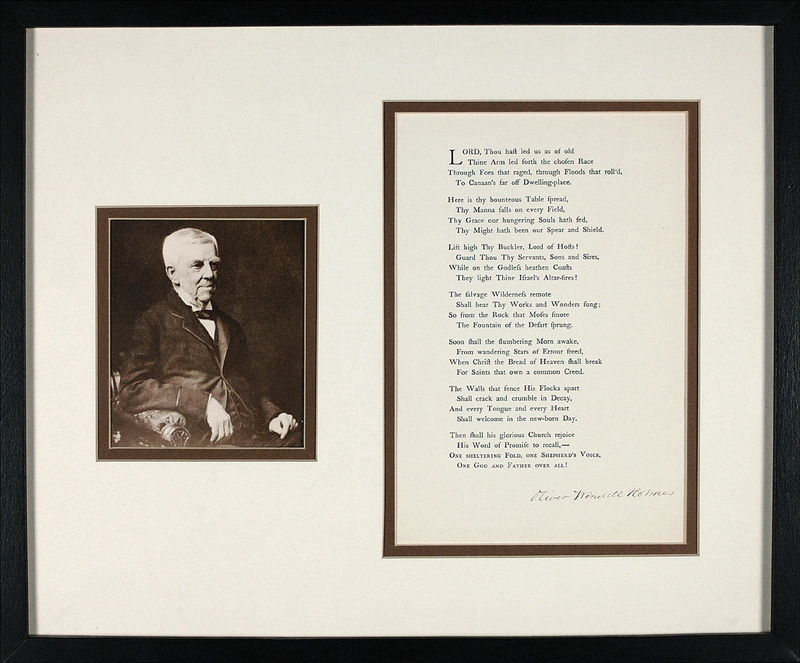 LORD, Thou haſt led us as of old
Thine Arm led forth the choſen Race
Through Foes that raged, through Floods that roll'd,
To Canaan's far off Dwelling-place.
Here is thy bounteous Table ſpread,
Thy Manna falls on every Field,
Thy Grace our hungering Souls hath fed,
Thy Might hath been our Spear and Shield.
Lift high Thy Buckler, Lord of Hoſts!
Guard Thou Thy Servants, Sons and Sires,
While on the Godleſs heathen Coaſts
They light Thine Iſrael's Altar-fires!
The ſalvage Wilderneſs remote
Shall hear Thy Works and Wonders ſung;
So from the Rock that Moſes ſmote
The Fountain of the Deſart ſprung.
Soon ſhall the ſlumbering Morn awake,
From wandering Stars of Errour freed,
When Chriſt the Bread of Heaven ſhall break
For Saints that own a common Creed.
The Walls that fence His Flocks apart
Shall crack and crumble in Decay,
And every Tongue and every Heart
Shall welcome in the new-born Day.
Then ſhall his glorious Church rejoice
His Word of Promiſe to recall,—
ONE SHELTERING FOLD, ONE SHEPHERD'S VOICE,
ONE GOD AND FATHER OVER ALL!
Oliver Wendell Holmes